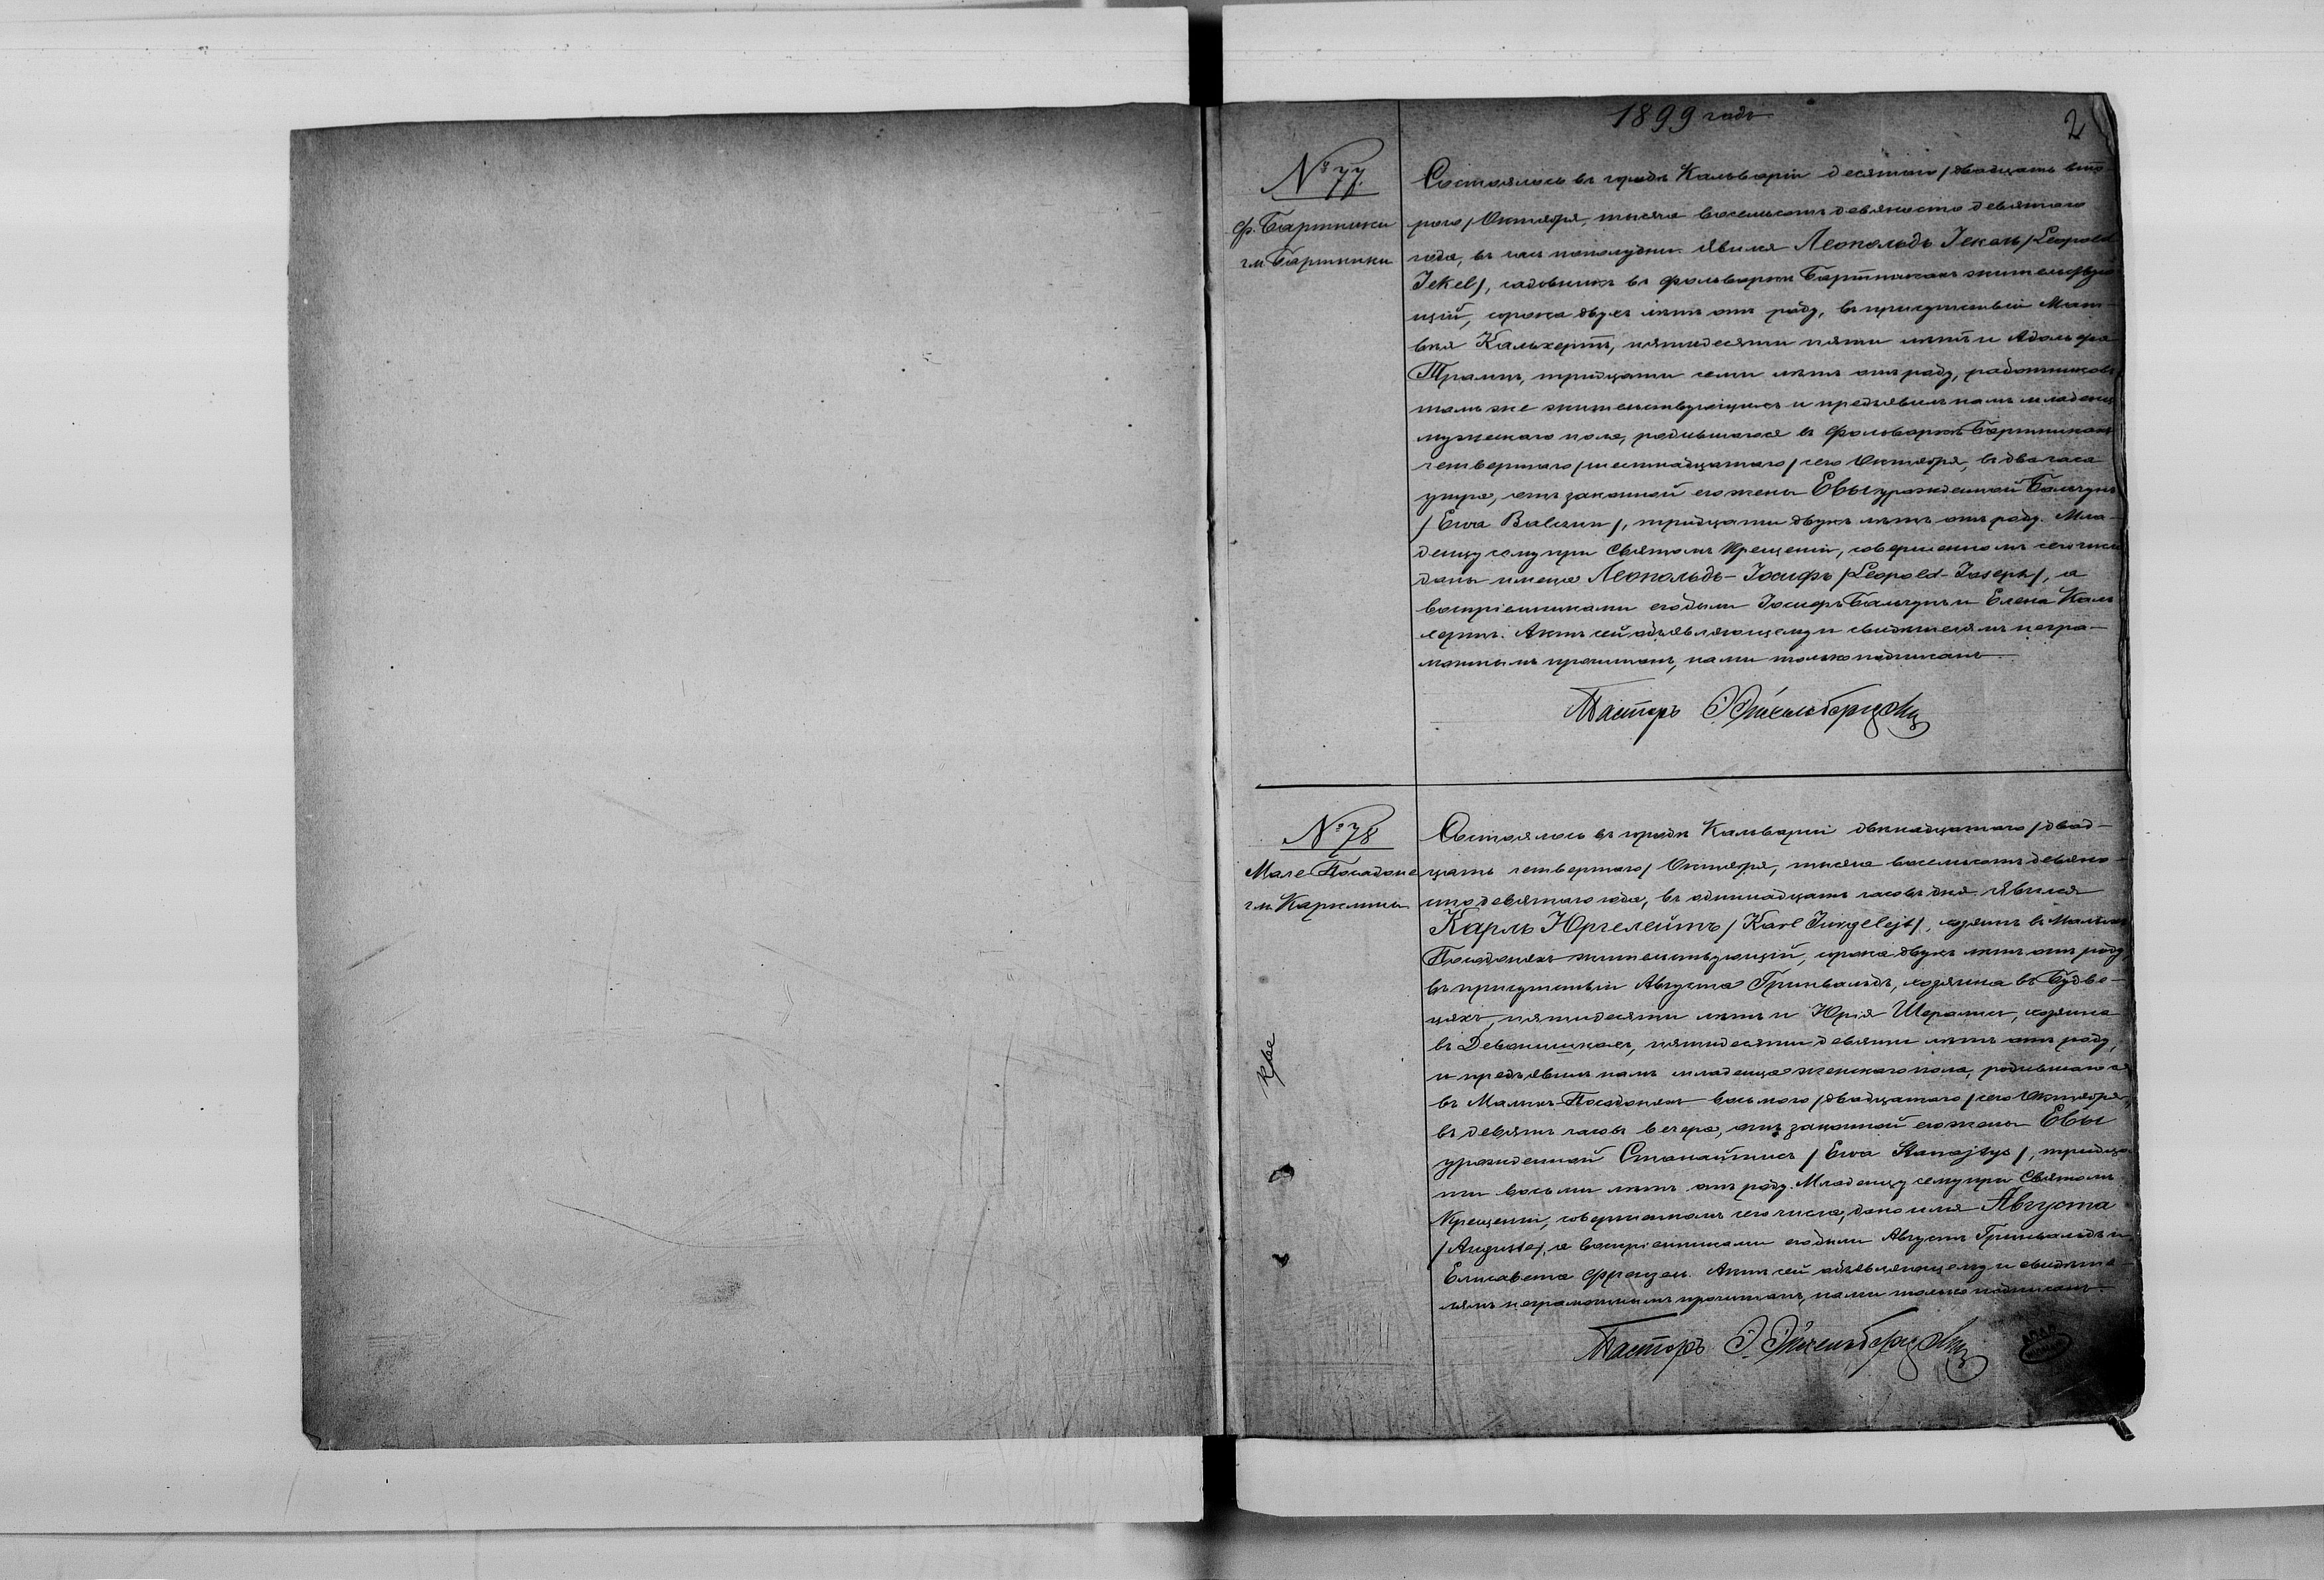 1899 годъ
2
№ 77.
ф. Бартники
гм. Бартники
Состоялось въ городѣ Кальваріи десятаго /двадцать вто-
рого/ Октября, тысяча восемьсотъ девяносто девятаго
года, въ часъ пополудни. Явился Леопольдъ Іекель /Leopold
Jekel/, садовникъ въ фольваркѣ Бартникахъ жительствую-
щій, сорока двухъ лѣтъ отъ роду, въ присутствіи Мат-
вѣя Кальхертъ, пятидесяти пяти лѣтъ и Адольфа
Трампъ, тридцати семи лѣтъ отъ роду, работниковъ
тамъ же жительствующихъ и предъявилъ намъ младенца
мужескаго пола, родившагося въ фольваркѣ Бартникахъ
четвертаго /шестнадцатаго/ сего Октября, въ два часа
утра, отъ законной его жены Евы урожденной Бальчунъ
/Ewa Balczun/, тридцати двухъ лѣтъ отъ роду. Мла-
денцу сему при Святомъ Крещеніи, совершенномъ сего числа
даны имена Леопольдъ-Іосифъ /Leopold-Joseph/, а
воспріемниками его были Іосифъ Бальчунъ и Елена Каль-
хертъ. Актъ сей объявляющему и свидѣтелямъ негра-
мотнымъ прочитанъ, нами только подписанъ.
Пасторъ
№ 78
Мале Посадоне
гм. Каркліны
Состоялось въ городѣ Кальваріи двѣнадцатаго /двад-
цать четвертаго/ Октября, тысяча восемьсотъ девяно-
сто девятаго года, въ одиннадцать часовъ дня. Явился
Карлъ Юргелейтъ /Karl Jurgelejt/, хозяинъ въ Малыхъ
Посадоняхъ жительствующій, сорока двухъ лѣтъ отъ роду
въ присутствіи Августа Гринвальдъ, хозяина въ Будве-
цяхъ, пятидесяти лѣтъ и Юрія Шератисъ, хозяина
въ Девонишкахъ, пятидесяти девяти лѣтъ отъ роду,
и предъявилъ намъ младенца женскаго пола, родившагося
въ Малыхъ-Посадоняхъ восьмого /двадцатаго/ сего Октября,
въ девять часовъ вечера, отъ законной его жены Евы
урожденной Станайтисъ /Ewa Stanajtys/, тридца-
ти восьми лѣтъ отъ роду. Младенцу сему при Святомъ
Крещеніи, совершенномъ сего числа, дано имя Августа
/Auguste/, а воспріемниками его были Августъ Гринвальдъ и
Елисавета Френцель. Актъ сей объявляющему и свидѣте-
лямъ неграмотнымъ прочитанъ, нами только подписанъ.
Пасторъ